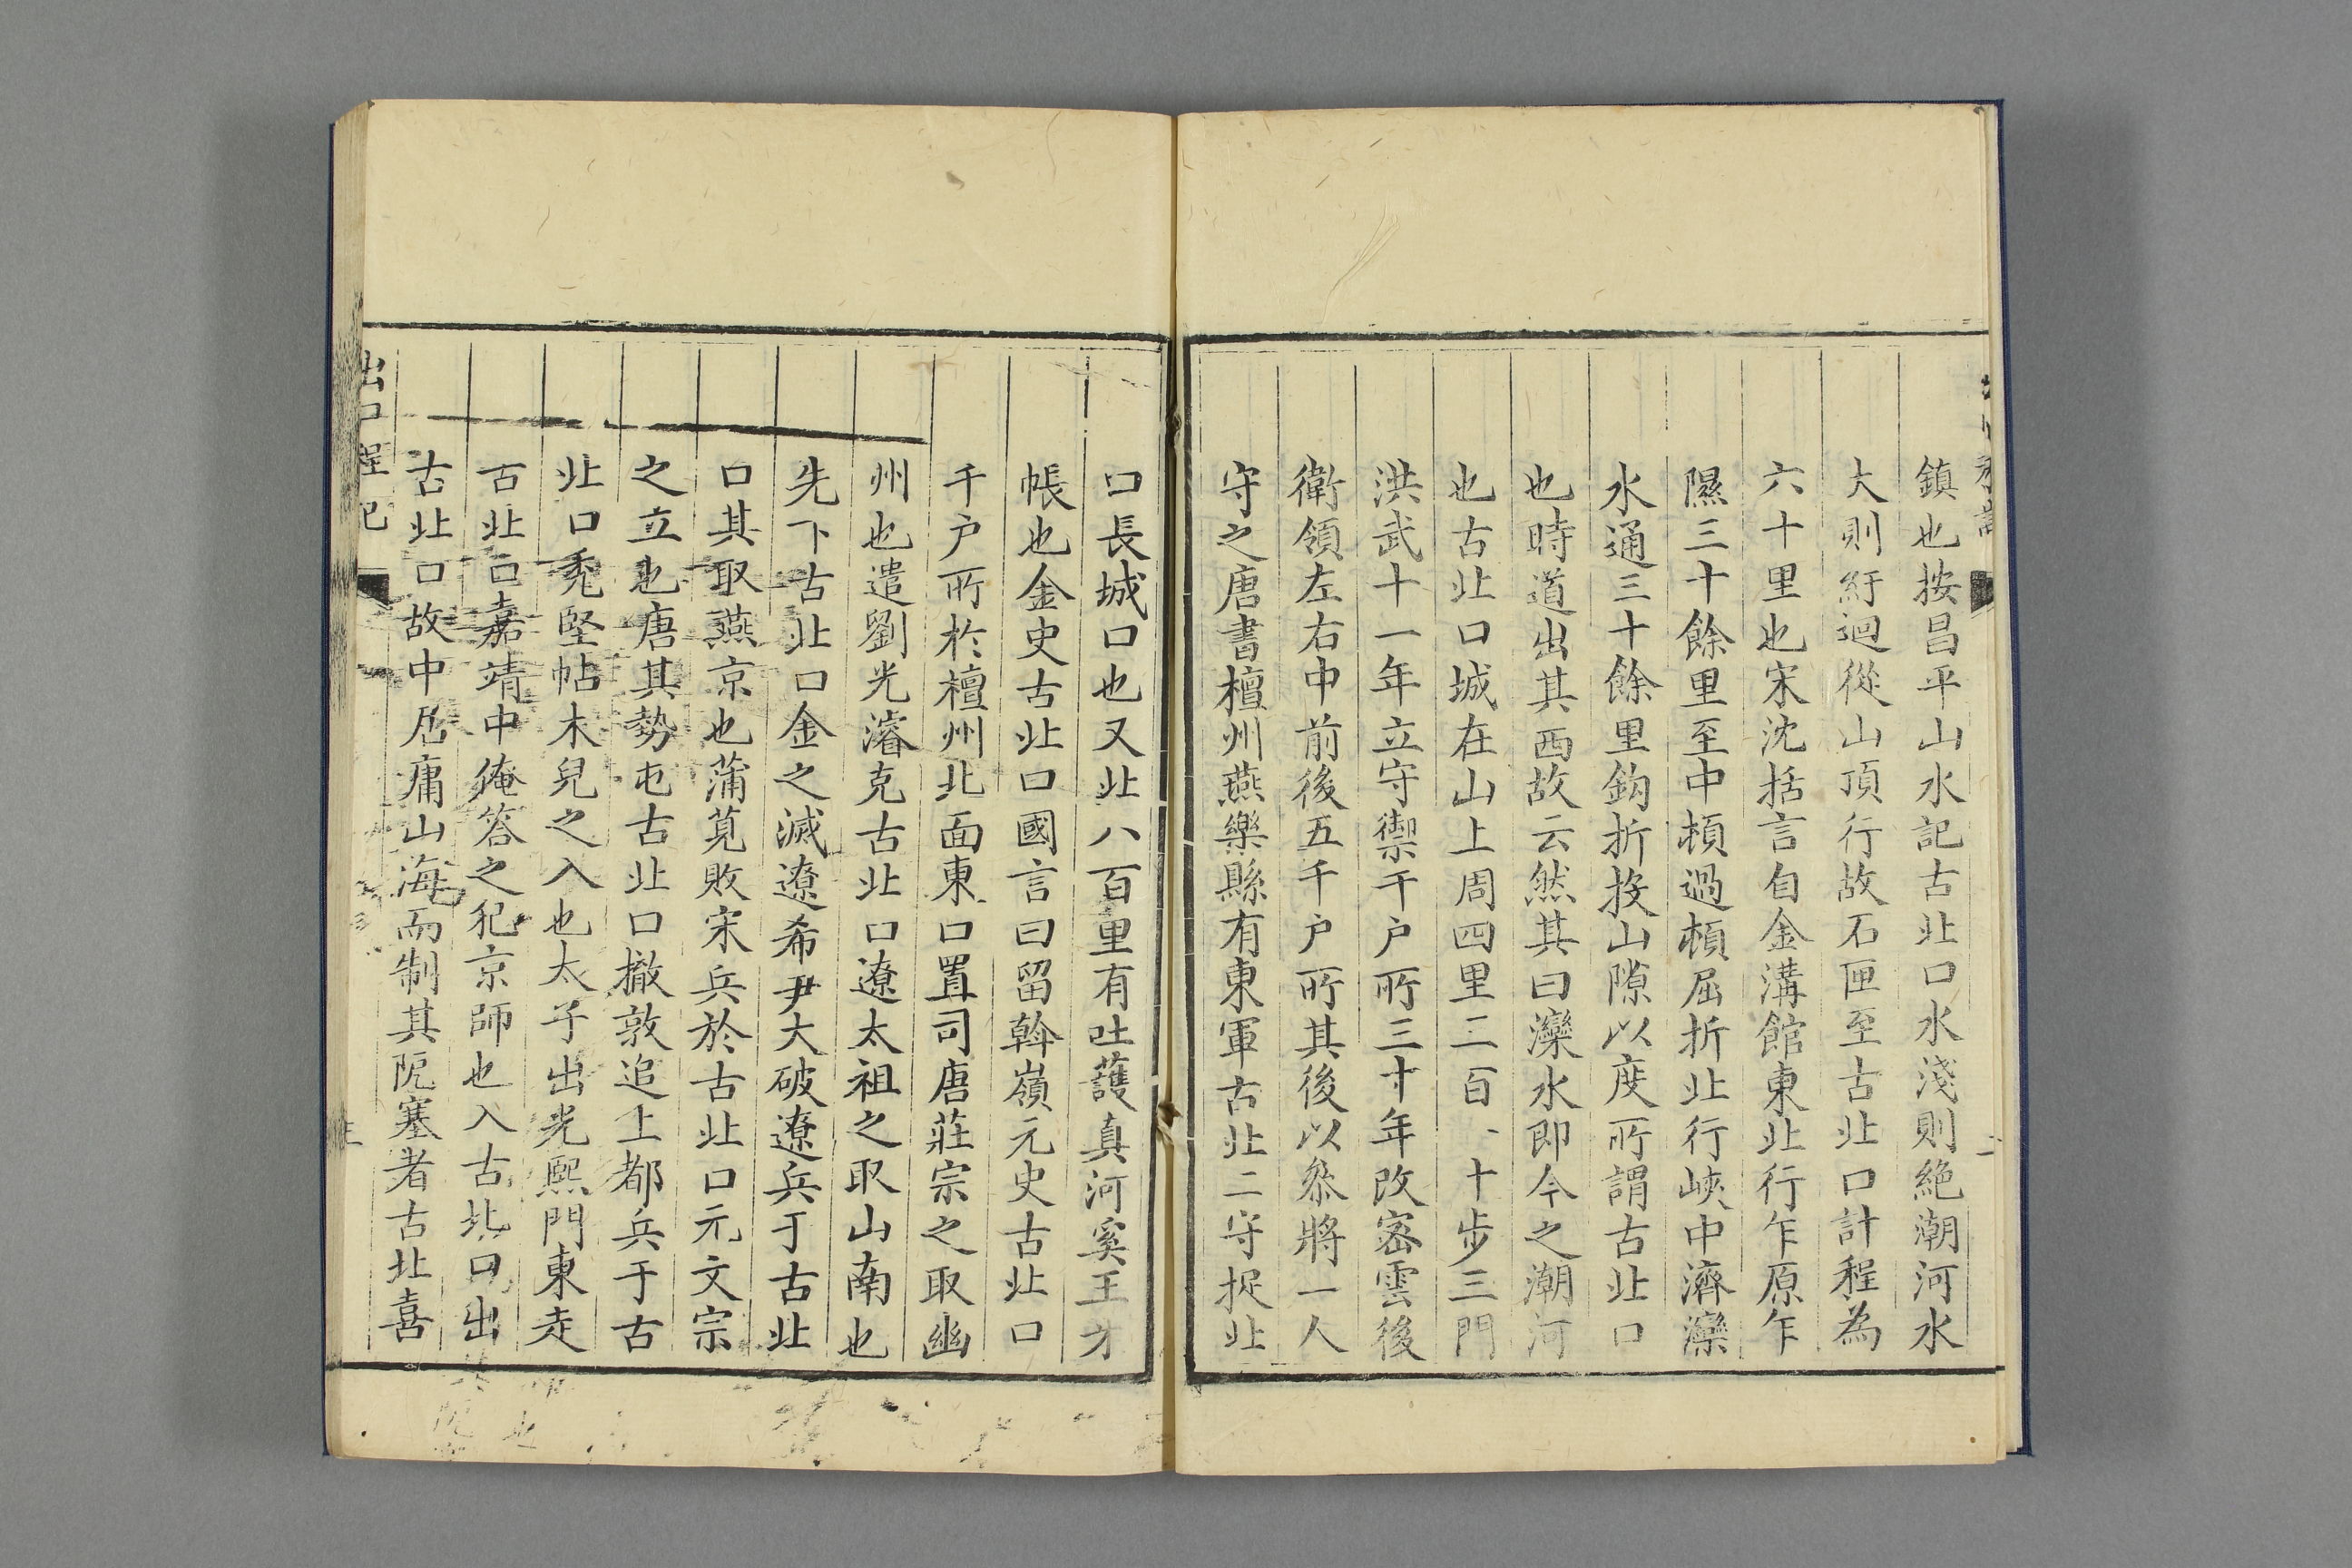 鎮也按昌平山水記古北口水淺則絶潮河水
大則紆迴從山頂行故石匣至古北口計程為
六十里也宋沈括言自金溝館東北行乍原乍
隰三十餘里至中頓過頓屈折北行峽中濟灤
水通三十餘里鈎折投山隙以度所謂古北口
也時道出其西故云然其曰灤水即今之潮河
也古北口城在山上周四里二百 十步三門
洪武十一年立守禦千戶所三十年改密雲後
衛領左右中前後五千戶所其後以叅將一人
守之唐書檀州燕樂縣有東軍古北二守捉北
口長城口也又北八百里有吐護真河奚王牙
帳也金史古北口國言曰留斡嶺元史古北口
千戶所於檀州北面東口置司唐莊宗之取幽
州也遣劉光濬克古北口遼太祖之取山南也
先下古北口金之滅遼希尹大破遼兵于古北
口其取燕京也蒲莧敗宋兵於古北口元文宗
之立也唐其勢屯古北口撤敦追上都兵于古
北口禿堅帖木兒之入也太子出光熙門東走
古北口嘉靖中俺答之犯京師也入古北口出
古北口故中居庸山海而制其阨塞者古北喜
出口程記